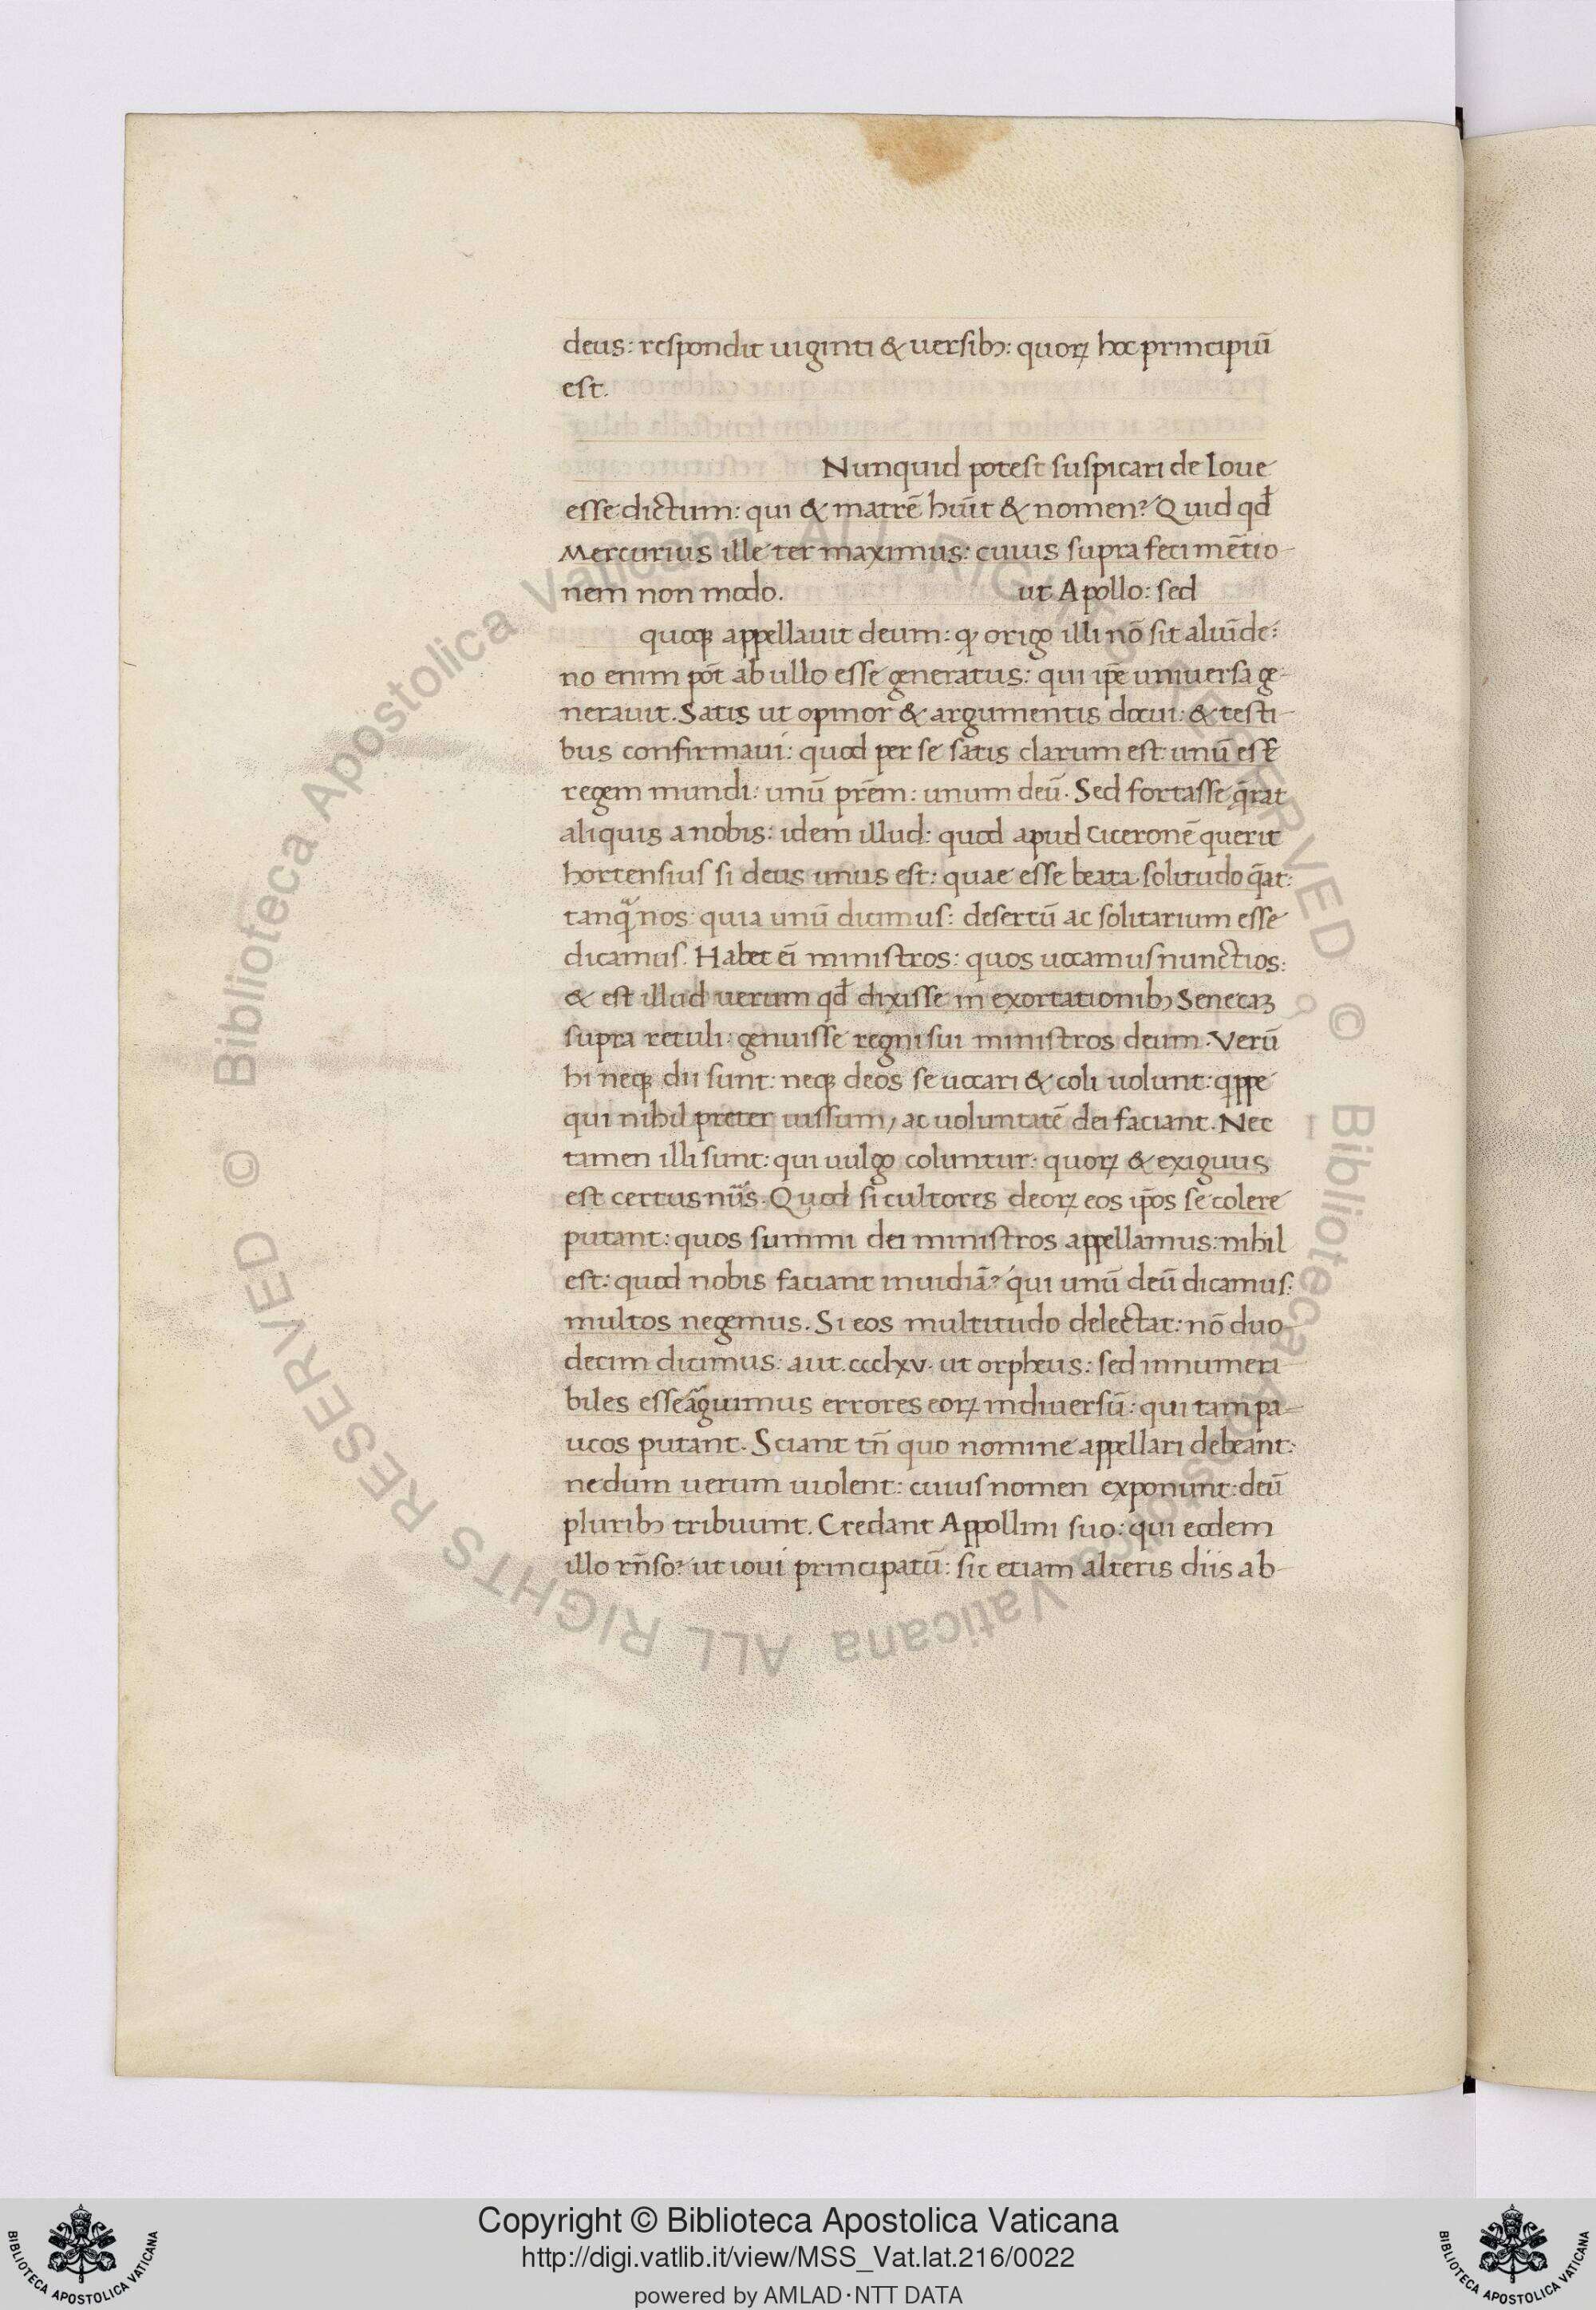 deus: respondit uiginti & uersibꝫ: quoꝝ hoc principiū
est.
Nunquid potest suspicari de Ioue
esse dictum: qui & matrē hūit & nomen? Quid qđ
Mercurius ille ter maximus: cuius supra feci mētio-
nem non modo. ut Apollo: sed
quoqꝫ appellauit deum: ꝙ origo illi nō sit aliūde:
no enim pōt ab ullo esse generatus: qui ip̄e uniuersa ge-
nerauit. Satis ut opinor & argumentis docui: & testi-
bus confirmaui: quod per se satis clarum est: unū esse
regem mundi: unū prēm: unum deū. Sed fortasse q̄rat
aliquis a nobis: idem illud: quod apud Ciceronē querit
hortensius si deus unus est: quae esse beata solitudo q̄at:
tanqͣ nos: quia unū dicimus: desertū ac solitarium esse
dicamus. Habet ei̅ ministros: quos uocamus nunctios:
& est illud uerum qđ dixisse in exortationibꝫ Senecaꝫ
supra retuli: genuisse regni sui ministros deum. Verū
hi neqꝫ dii sunt: neqꝫ deos se uocari & coli uolunt: qppe
qui nihil preter iussum, ac uoluntatē dei faciant. Nec
tamen illi sunt: qui uulgo coluntur: quoꝝ & exiguus
est certus nūs. Quod si cultores deoꝝ eos ip̄os se colere
putant: quos summi dei ministros appellamus: nihil
est: quod nobis faciant inuidiā? qui unū deū dicamus:
multos negemus. Si eos multitudo delectat: nō duo-
decim dicimus: aut .ccclxv. ut orpheus: sed innumera-
biles esse aͬguimus errores eoꝝ in diuersū: qui tam pa-
ucos putant. Sciant tn̄ quo nomine appellari debeant:
ne dum uerum uiolent: cuius nomen exponunt: deū
pluribꝫ tribuunt. Credant Appollini suo: qui eodem
illo rn̄so? ut ioui principatū: sic etiam alteris diis ab-
Copyright © Biblioteca Apostolica Vaticana
http://digi.vatlib.it/view/MSS_Vat.lat.216/0022
powered by AMLAD·NTT DATA